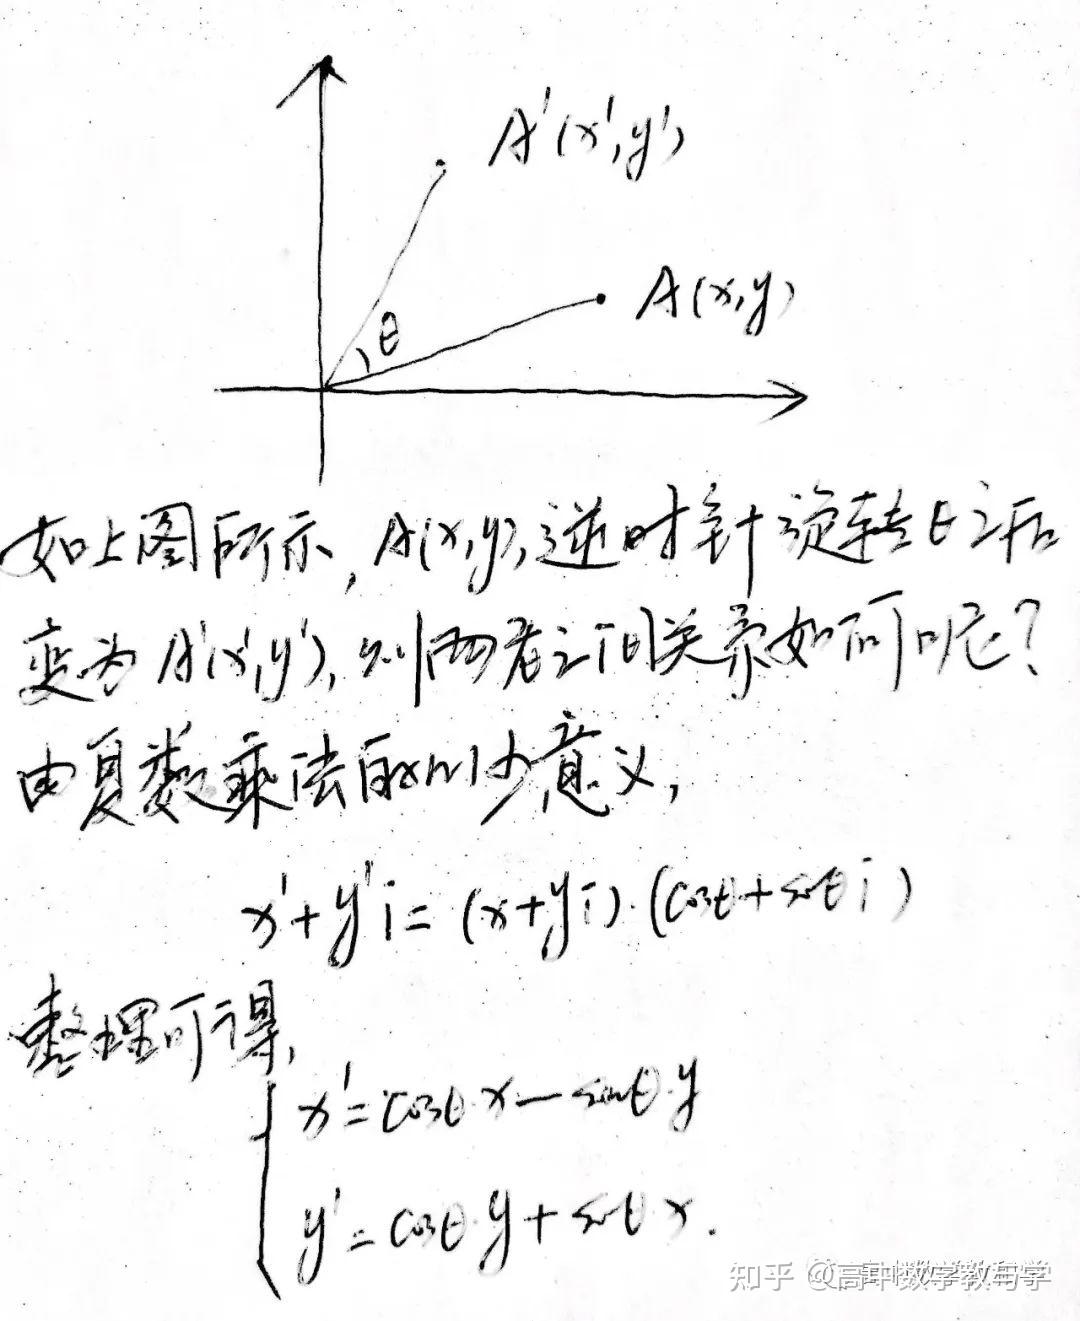 A'(x',y')
A(x,y)
θ
如上图所示,A(x,y),逆时针旋转θ之后
变为A'(x',y'),则两者之间关系如何呢?
由复数乘法的几何意义,
x'+y'i=(x+yi)·(cosθ+sinθi)
整理可得,
x'=cosθ·x-sinθ·y
y'=cosθ·y+sinθ·x.
知乎 @高中数学教与学